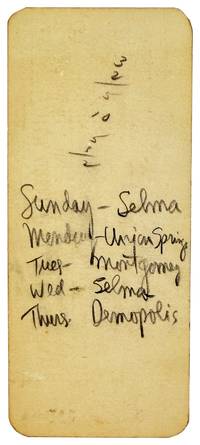 Sunday - Selma
Monday - Union Springs
Tues - Montgomery
Wed - Selma
Thurs Demopolis